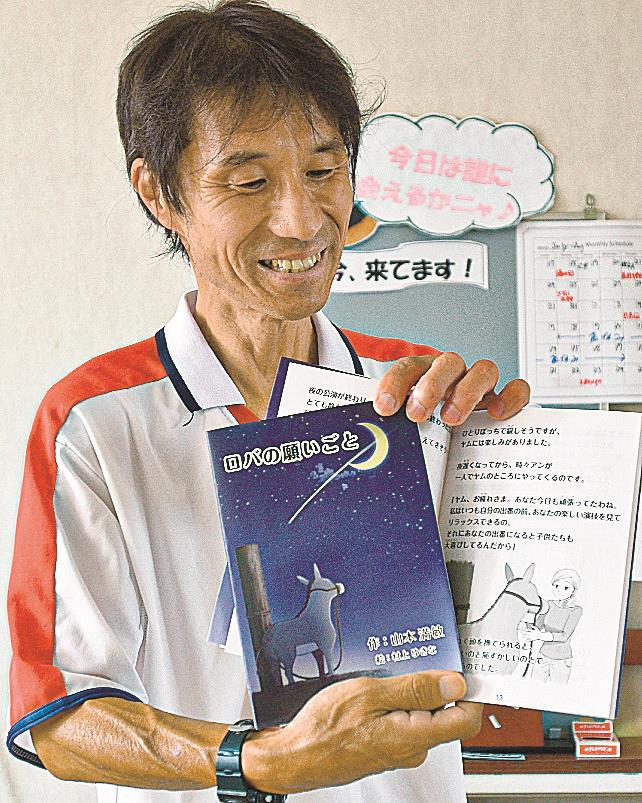 今日は誰に
会えるかニャ♪
今、来てます！
Monthly Schedule
夜の公演が終わり
ロバの願いごと
作：山本 清敏
絵：村上 ゆきな
ひとりぼっちで寂しそうですが、
ヤムには楽しみがありました。
夜遅くなってから、時々アンが
一人でヤムのところにやってくるのです。
「ヤム、お疲れさま。あなた今日も頑張ってたわね。
私はいつも自分の出番の前、あなたの楽しい演技を見て
リラックスできるの。
それにあなたの出番になると子供たちも
大喜びしてるんだから」
て頭を撫でられると
いのと恥ずかしいのとで
るのでした。
13